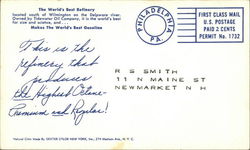 The World's Best Refinery
located south of Wilmington on the Delaware river.
Owned by Tidewater Oil Company, it is the world's best
for size and
Makes The World's Best Gasoline
PHILADELPHIA
PA.
FIRST CLASS MAIL
U.S. POSTAGE
PAID 2 CENTS
PERMIT No. 1732
This is the
refinery that
produces
the Highest Octane
Premium and Regular!
R S SMITH
11 N MAINE ST
NEWMARKET N H
Natural Color Made By DEXTER COLOR NEW YORK, INC.,